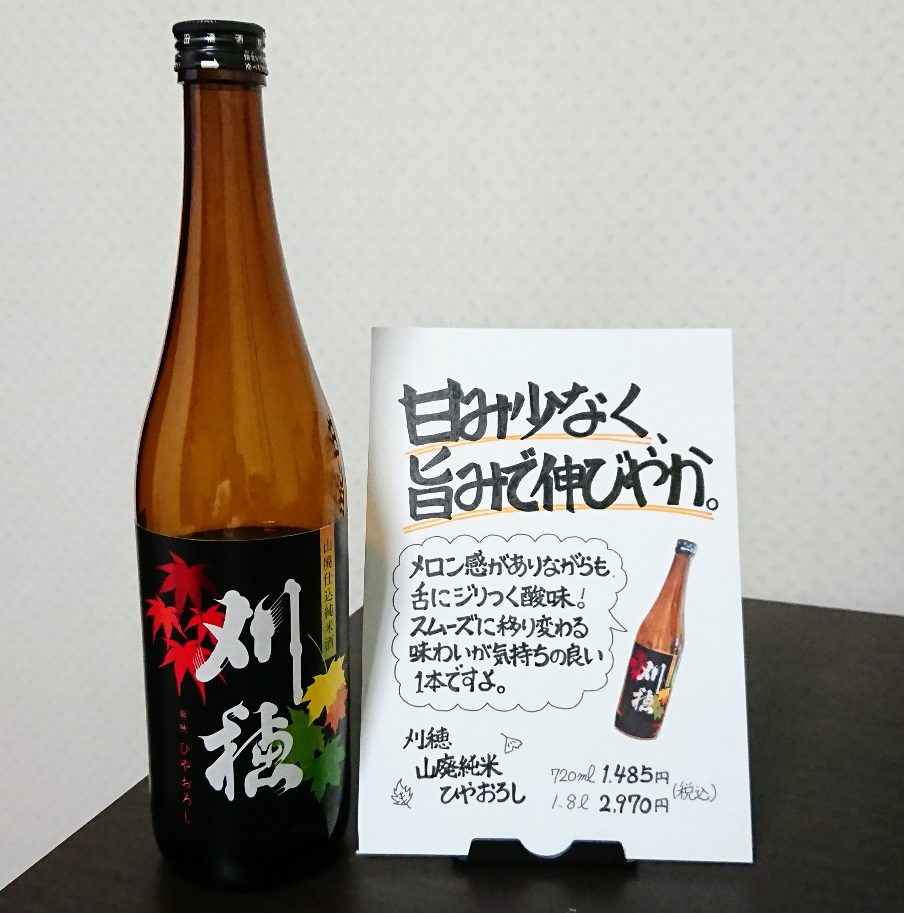 山廃仕込純米酒
刈穂
ひやおろし
甘み少なく、
旨みで伸びやか。
メロン感がありながらも、
舌にジリつく酸味!
スムーズに移り変わる
味わいが気持ちの良い
1本ですよ。
刈穂
刈穂
山廃純米
ひやおろし
720ml 1.485円
1.8l 2,970円
(税込)